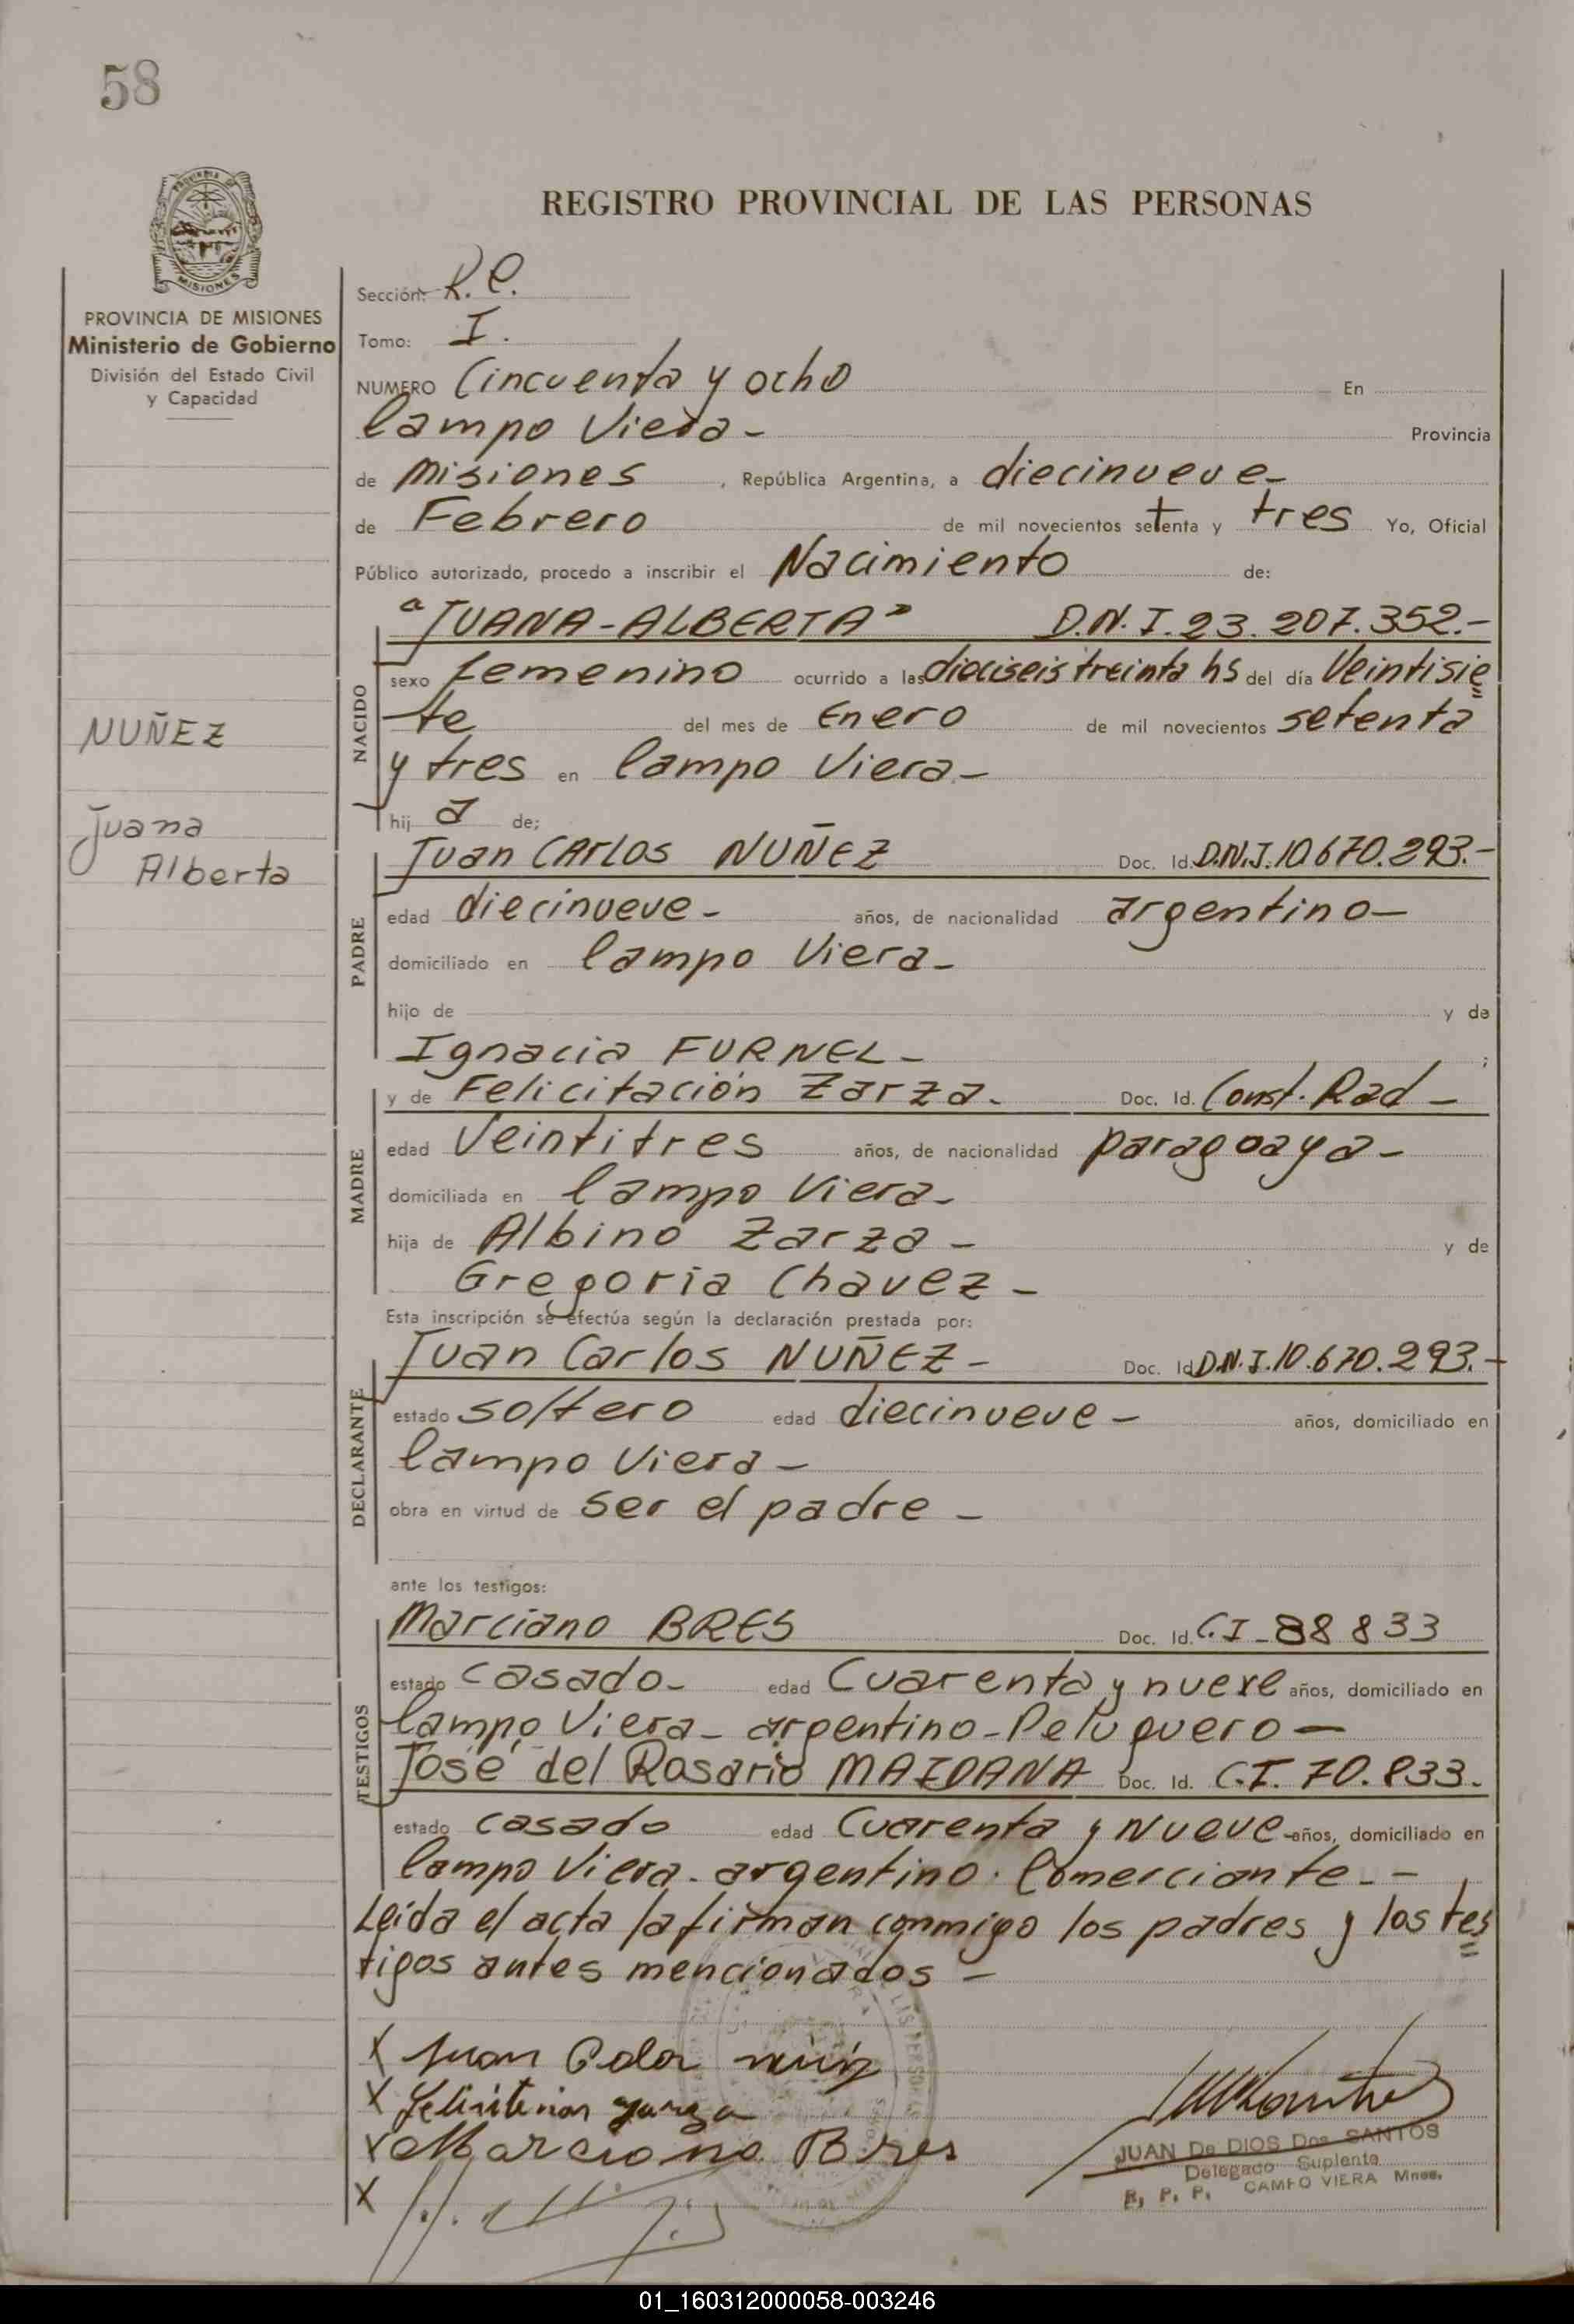 58
REGISTRO PROVINCIAL DE LAS PERSONAS
PROVINCIA DE MISIONES
Ministerio de Gobierno
División del Estado Civil
y Capacidad
NUÑEZ
Juana
Alberta
Sección: R.C.
Tomo: I.
NUMERO Cincuenta y ocho En
Campo Viera- Provincia
de Misiones, República Argentina, a diecinueve-
de Febrero de mil novecientos setenta y tres Yo, Oficial
Público autorizado, procedo a inscribir el Nacimiento de:
NACIDO
"JUANA-ALBERTA" D.N.I. 23.207.352.-
sexo femenino ocurrido a las dieciseis treinta hs del día Veintisie
te del mes de Enero de mil novecientos setenta
y tres en Campo Viera.-
hij a de;
PADRE
Juan CARlos NUÑEZ Doc. Id. D.N.I. 10.670.293.-
edad diecinueve- años, de nacionalidad argentino-
domiciliado en Campo Viera-
hijo de y de
Ignacia FURNEL- ;
MADRE
y de Felicitación Zarza- Doc. Id. Const. Rad-
edad Veintitres años, de nacionalidad paraguaya-
domiciliada en Campo Viera-
hija de Albino Zarza- y de
Gregoria Chavez-
Esta inscripción se efectúa según la declaración prestada por:
DECLARANTE
Juan Carlos NUÑEZ- Doc. Id. D.N.I. 10.670.293.-
estado soltero edad diecinueve- años, domiciliado en
Campo Viera-
obra en virtud de ser el padre-
ante los testigos:
TESTIGOS
Marciano BRES Doc. Id. C.I-88833
estado casado- edad Cuarenta y nueve años, domiciliado en
Campo Viera- argentino-Peluquero-
José del Rosario MAIDANA Doc. Id. C.I. 70.833.
estado casado edad Cuarenta y Nueve años, domiciliado en
Campo Viera- argentino. Comerciante.-
Leída el acta la firman conmigo los padres y los tes
tigos antes mencionados-
X Juan
X
X Marciano Bres
X
JUAN De DIOS Dos SANTOS
Delegado Suplente
R, P. P. CAMPO VIERA Mnes.
01_160312000058-003246